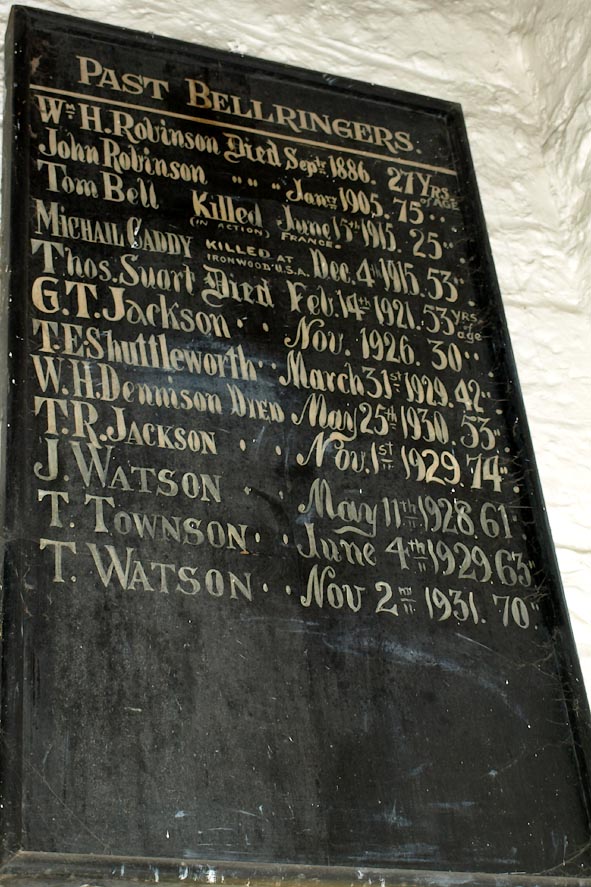 PAST BELLRINGERS.
Wm. H. Robinson Died Septr 1886. 27 Yrs. of AGE
John Robinson " " " Jany 1905. 75 " "
Tom Bell Killed (IN ACTION) FRANCE. June 15th 1915. 25 " "
MICHAIL CADDY KILLED AT IRONWOOD U.S.A. Dec. 4th 1915. 53 "
Thos. Suart Died Feb. 14th 1921. 53 yrs. of age
G. T. Jackson " " Nov. 1926. 30 " "
T. E. Shuttleworth " " March 31st 1929. 42 " "
W. H. Dennison DIED May 25th 1930. 53 " "
T. R. JACKSON " " Nov. 1st 1929. 74 "
J. WATSON " " May 11th 1928. 61 "
T. TOWNSON " " June 4th 1929. 63 "
T. WATSON " " Nov 2nd 1931. 70 "